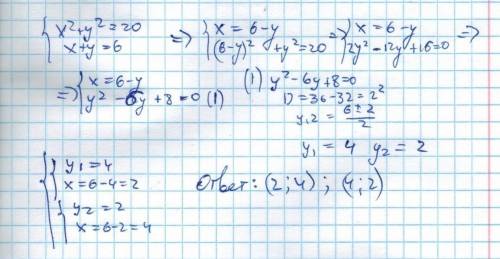 { x² + y² = 20   x + y = 6 => { x = 6 - y   (6-y)² + y² = 20 => { x = 6 - y   2y² - 12y + 16 = 0 =>
=> { x = 6 - y   y² - 6y + 8 = 0 (1)
(1) y² - 6y + 8 = 0
D = 36 - 32 = 2²
y₁,₂ = (6 ± 2)/2
y₁ = 4   y₂ = 2
{ y₁ = 4
x = 6 - 4 = 2
{ y₂ = 2
x = 6 - 2 = 4
Ответ: (2; 4) ; (4; 2)